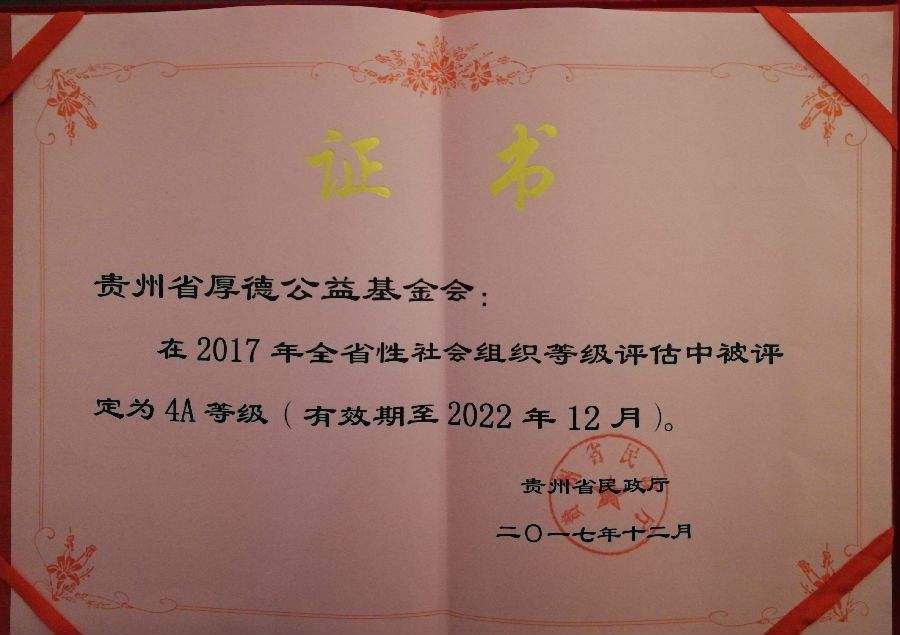 证书
贵州省厚德公益基金会：
在2017年全省性社会组织等级评估中被评
定为4A等级（有效期至2022年12月）。
贵州省民政厅
二〇一七年十二月